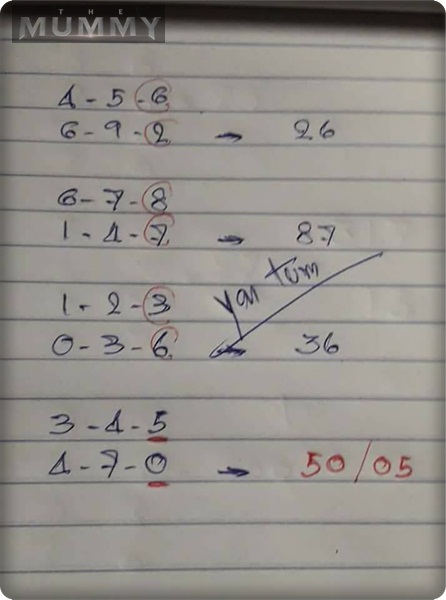 THE
MUMMY
4 - 5 - 6
6 - 9 - 2 → 26
6 - 7 - 8
1 - 4 - 7 → 87
1 - 2 - 3
0 - 3 - 6 → 36
3 - 4 - 5
4 - 7 - 0 → 50/05